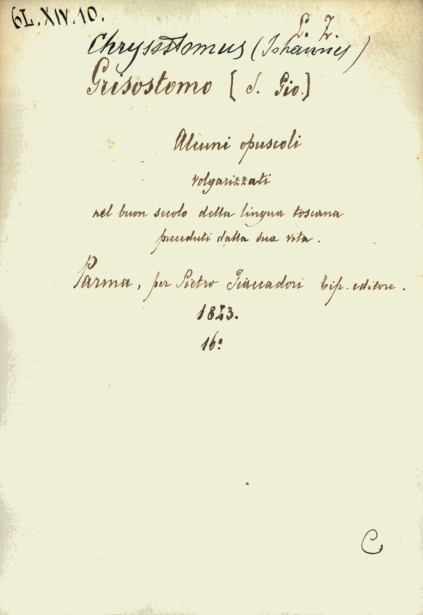 6L.XIV.10.
L. Z.
Chrysostomus (Johannes)
Grisostomo [S. Gio.]
Alcuni opuscoli
volgarizzati
nel buon secolo della lingua toscana
preceduti dalla sua vita.
Parma, per Pietro Fiaccadori tip. editore.
1843.
16º
C